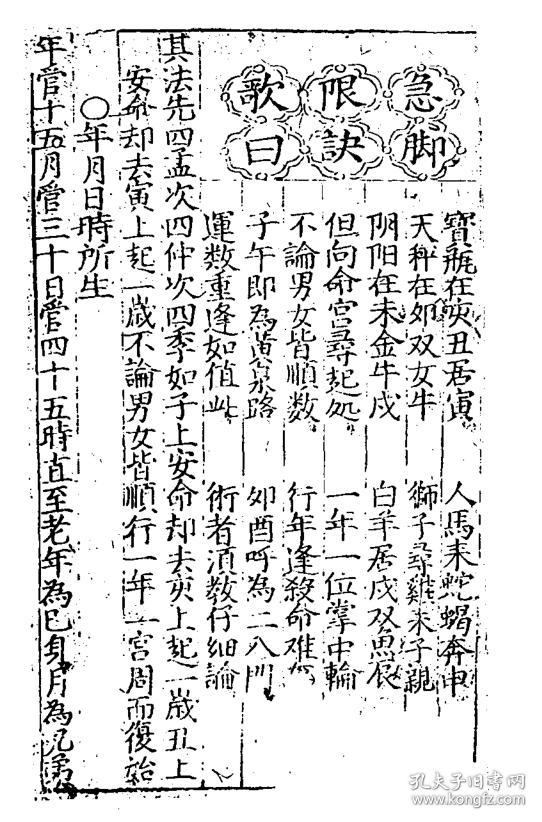 急脚
限訣
歌曰
寶瓶在亥丑居寅 人馬未蛇蝎奔申
天秤在卯双女牛 獅子尋雞未子親
阴阳在未金牛戌 白羊居戌双魚辰
但向命宮尋起処 一年一位掌中輪
不論男女皆順数 行年逢殺命难
子午即為黄泉路 卯酉呼為二八門
運数重逢如值此 術者須教仔細論
其法先四孟次四仲次四季如子上安命却去亥上起一歳丑上
安命却去寅上起一歳不論男女皆順行一年一宮周而復始
○年月日時所生
年管十五月管三十日管四十五時直至老年為己身月為兄弟
孔夫子旧书网
www.kongfz.com